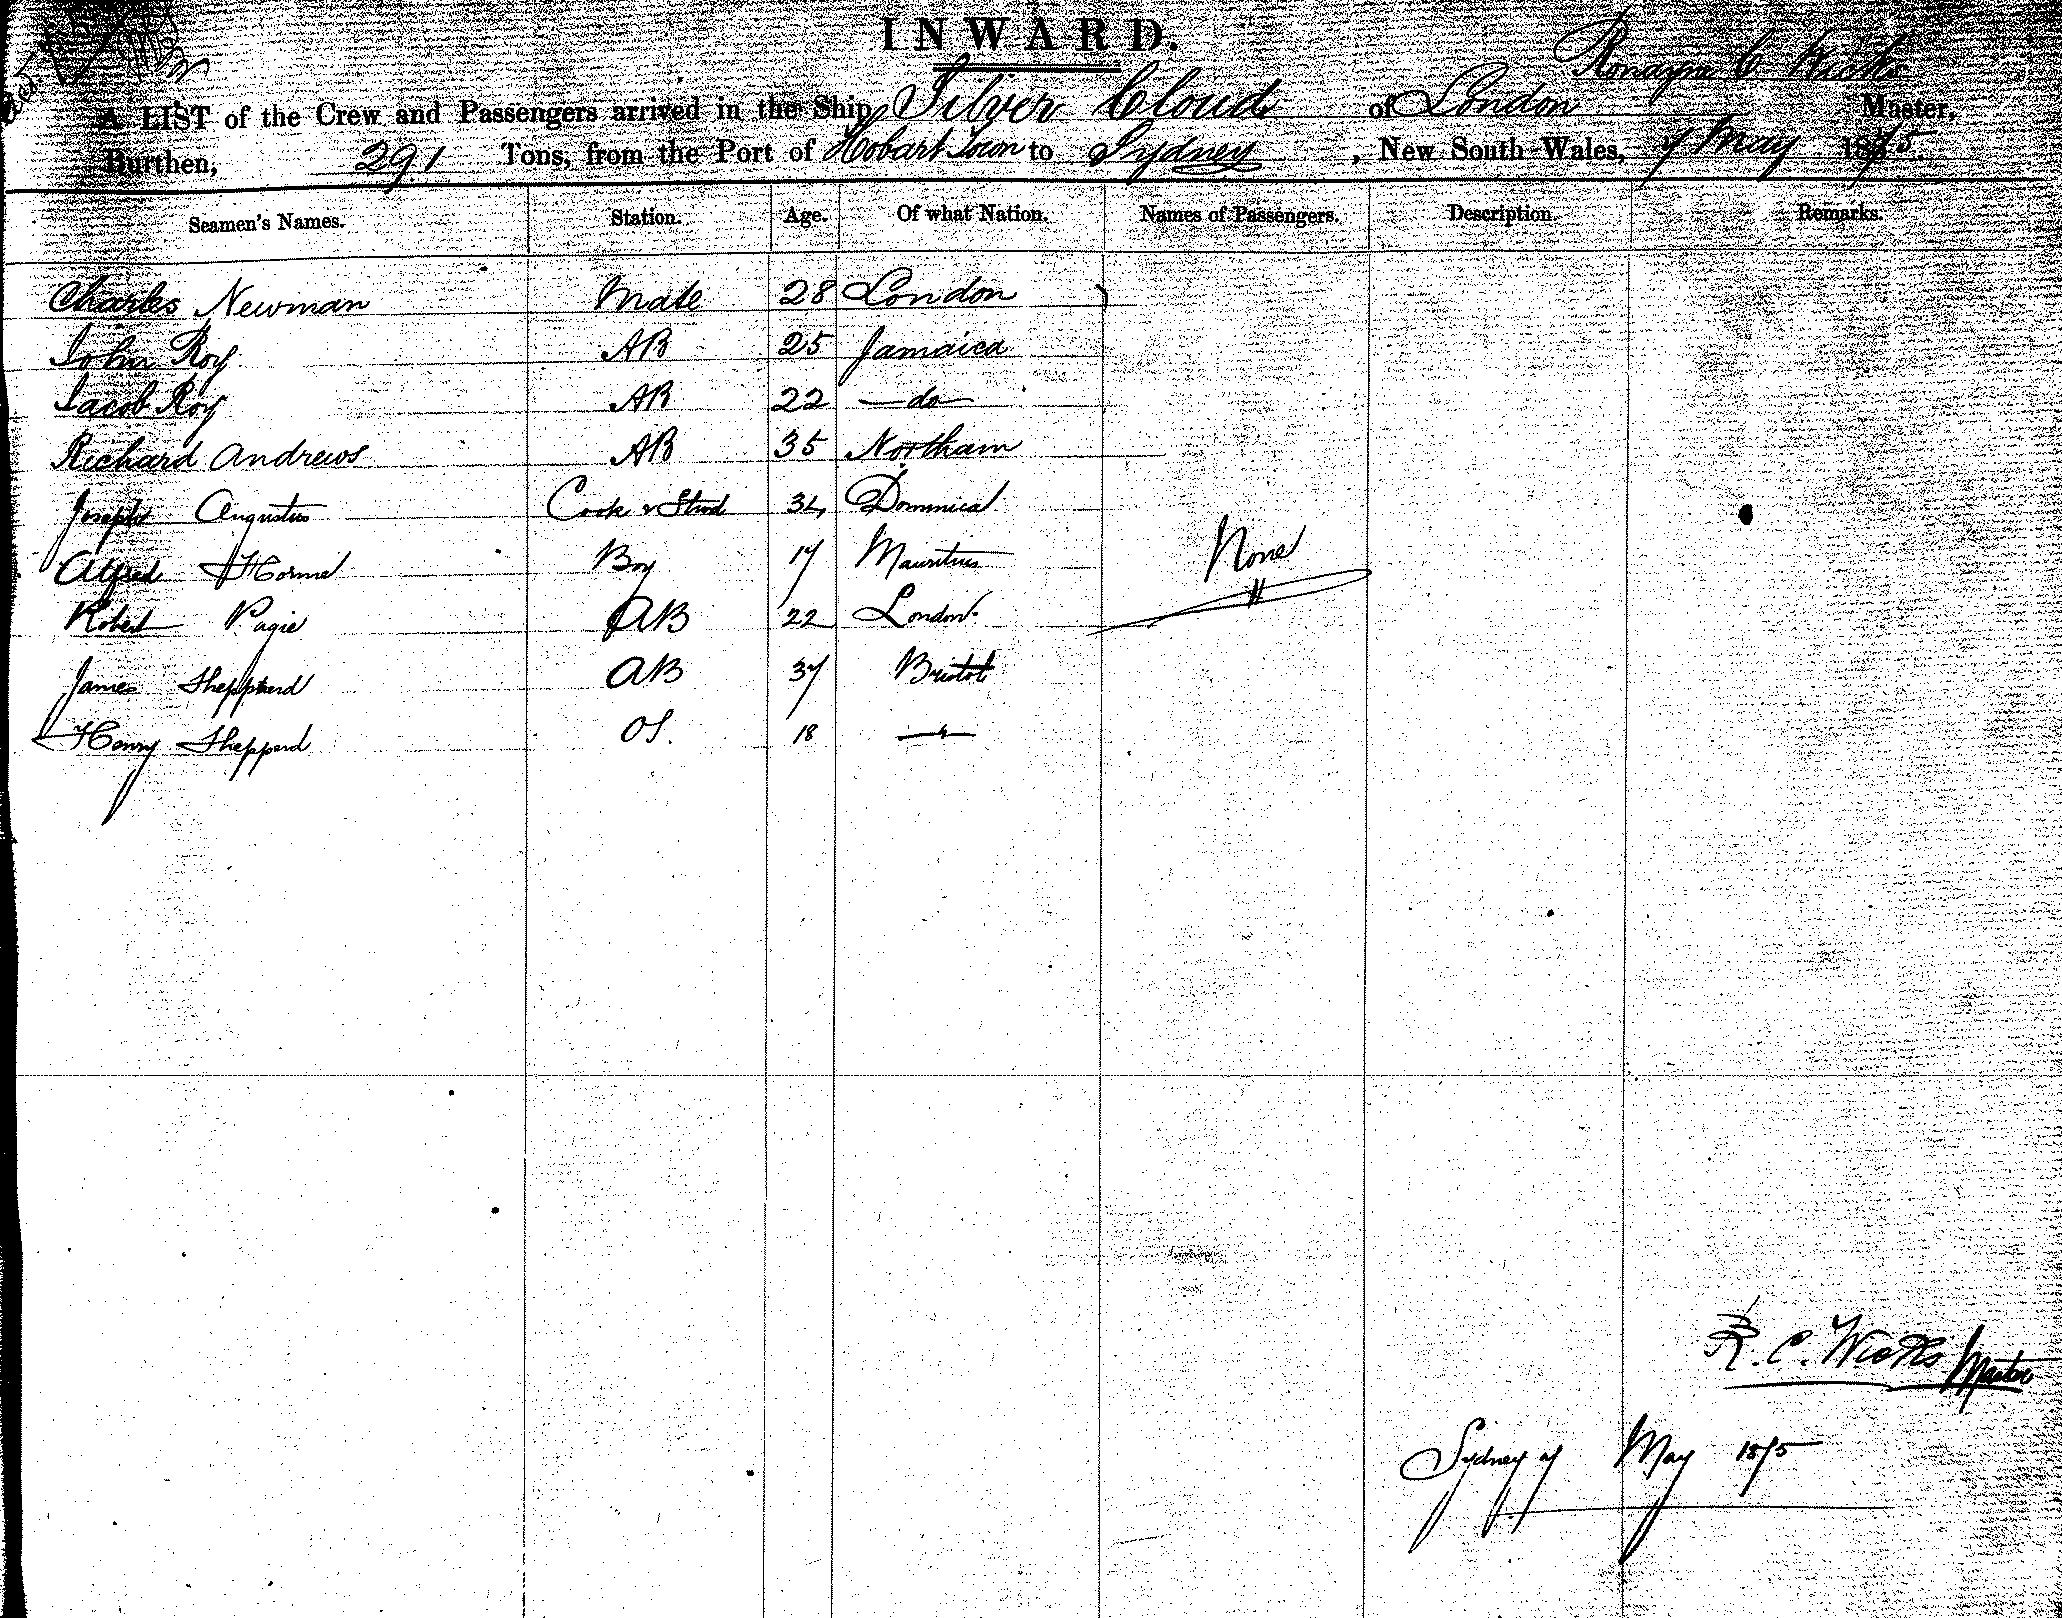 INWARD.
C. Wicks
A LIST of the Crew and Passengers arrived in the Ship Silver Cloud of London Master,
Burthen, 291 Tons, from the Port of Hobart Town to Sydney, New South Wales, 7 May 1875.
Seamen's Names. Station. Age. Of what Nation. Names of Passengers. Description. Remarks.
Charles Newman Mate 28 London
John Roy AB 25 Jamaica
Jacob Roy AB 22 — do —
Richard Andrews AB 35 Northam
Joseph Augustus Cook & Stwd 34 Dominica
Alfred Horne Boy 17 Mauritius None
Robert Pagie AB 22 London
James Shepperd AB 37 Bristol
Henry Shepperd OS. 18 — " —
R. C. Wicks Master
Sydney 7 May 1875